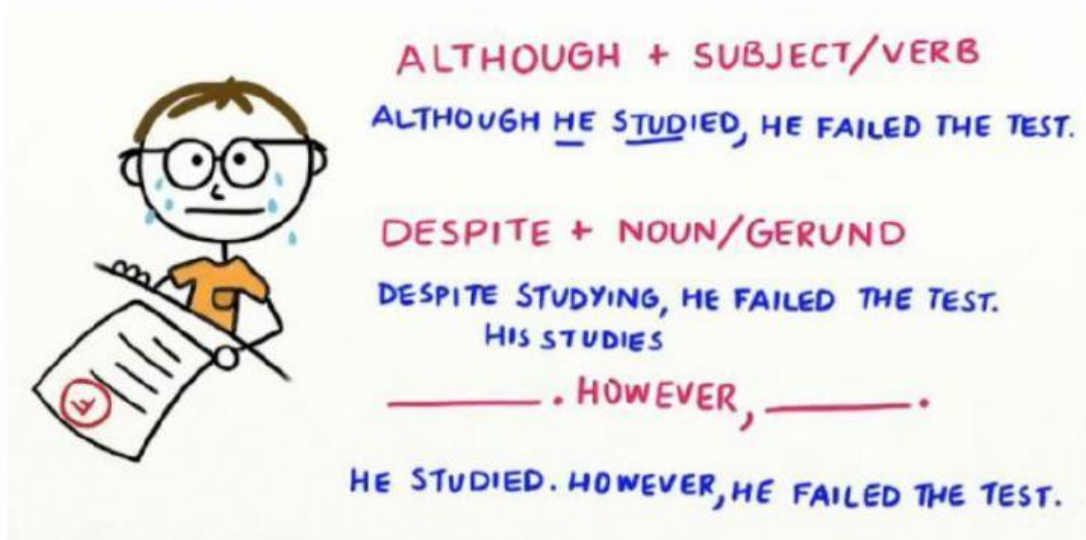 ALTHOUGH + SUBJECT/VERB
ALTHOUGH HE STUDIED, HE FAILED THE TEST.
DESPITE + NOUN/GERUND
DESPITE STUDYING, HE FAILED THE TEST.
HIS STUDIES
______. HOWEVER, ______.
HE STUDIED. HOWEVER, HE FAILED THE TEST.
F